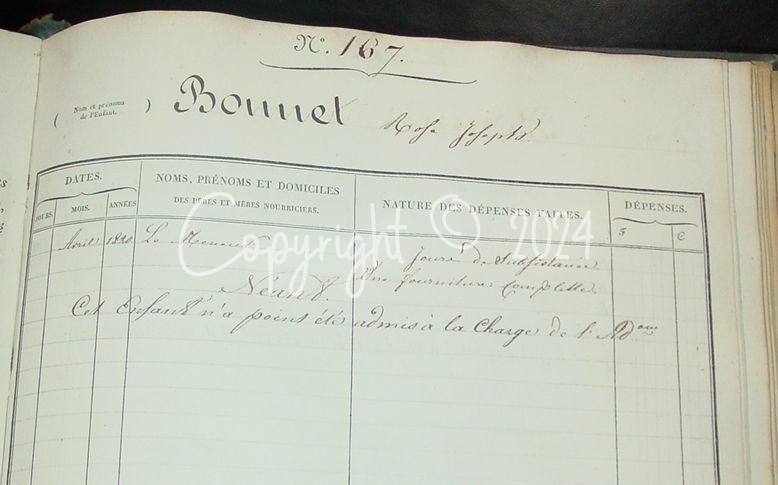 N.° 167.
( Nom et prénoms de l'Enfant. ) Bonnet Rose Joseph
DATES.
NOMS, PRÉNOMS ET DOMICILES
DES PÈRES ET MÈRES NOURRICIERS.
NATURE DES DÉPENSES FAITES.
DÉPENSES.
JOURS. MOIS. ANNÉES
F C
Avril 1820. Le
Jours de Subsistance.
Une fourniture Complette.
Néant.
Cet Enfant n'a point été admis à la Charge de l'Adon
Copyright © 2024